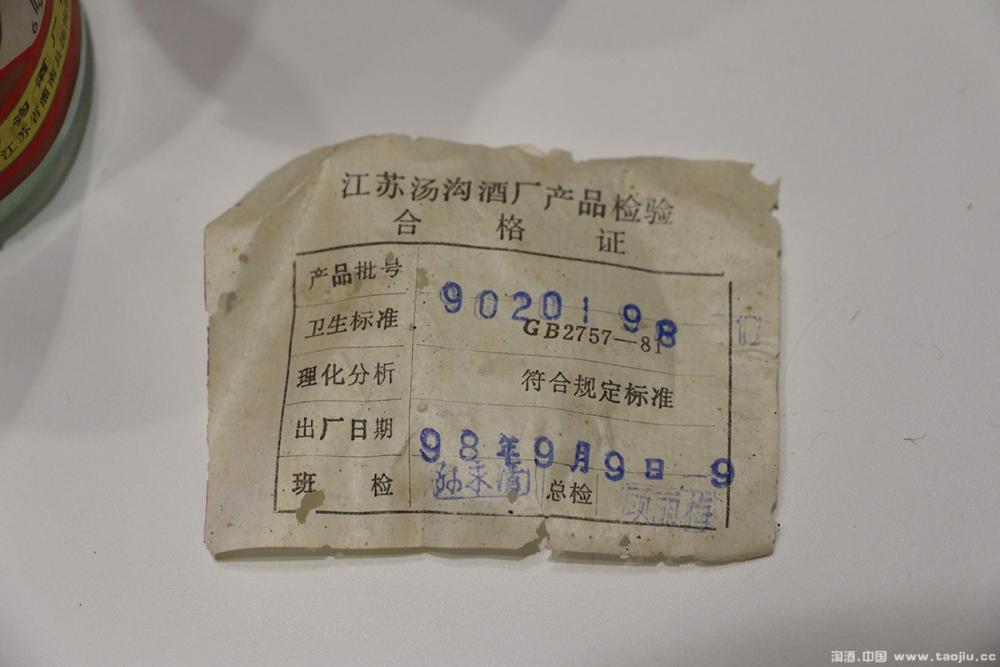 江苏省灌南县
江苏汤沟酒厂产品检验
合格证
产品批号 9020198
卫生标准 GB2757—81
理化分析 符合规定标准
出厂日期 98年9月9日-9
班检 总检
淘酒.中国 www.taojiu.cc